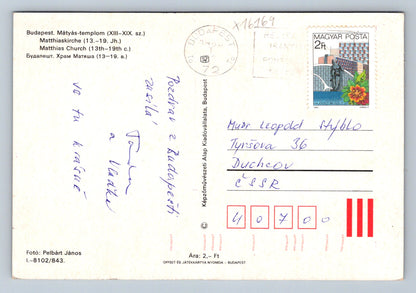 Budapest. Mátyás-templom (XIII–XIX. sz.)
Matthiaskirche (13.–19. Jh.)
Matthias Church (13th–19th c.)
Будапешт. Храм Матяша (13–19. в.)
x16169
BUDAPEST
72
MAGYAR POSTA
2Ft
Pozdrav z Budapešti
zasílá
a Vlaďka
je tu krásně
Képzőművészeti Alap Kiadóvállalata, Budapest
Mudr Leopold Stýblo
Tyršova 36
Duchcov
ČSSR
40700
Fotó: Pelbárt János
I.–8102/843.
Ára: 2,– Ft
OFFSET ÉS JÁTÉKKÁRTYA NYOMDA – BUDAPEST